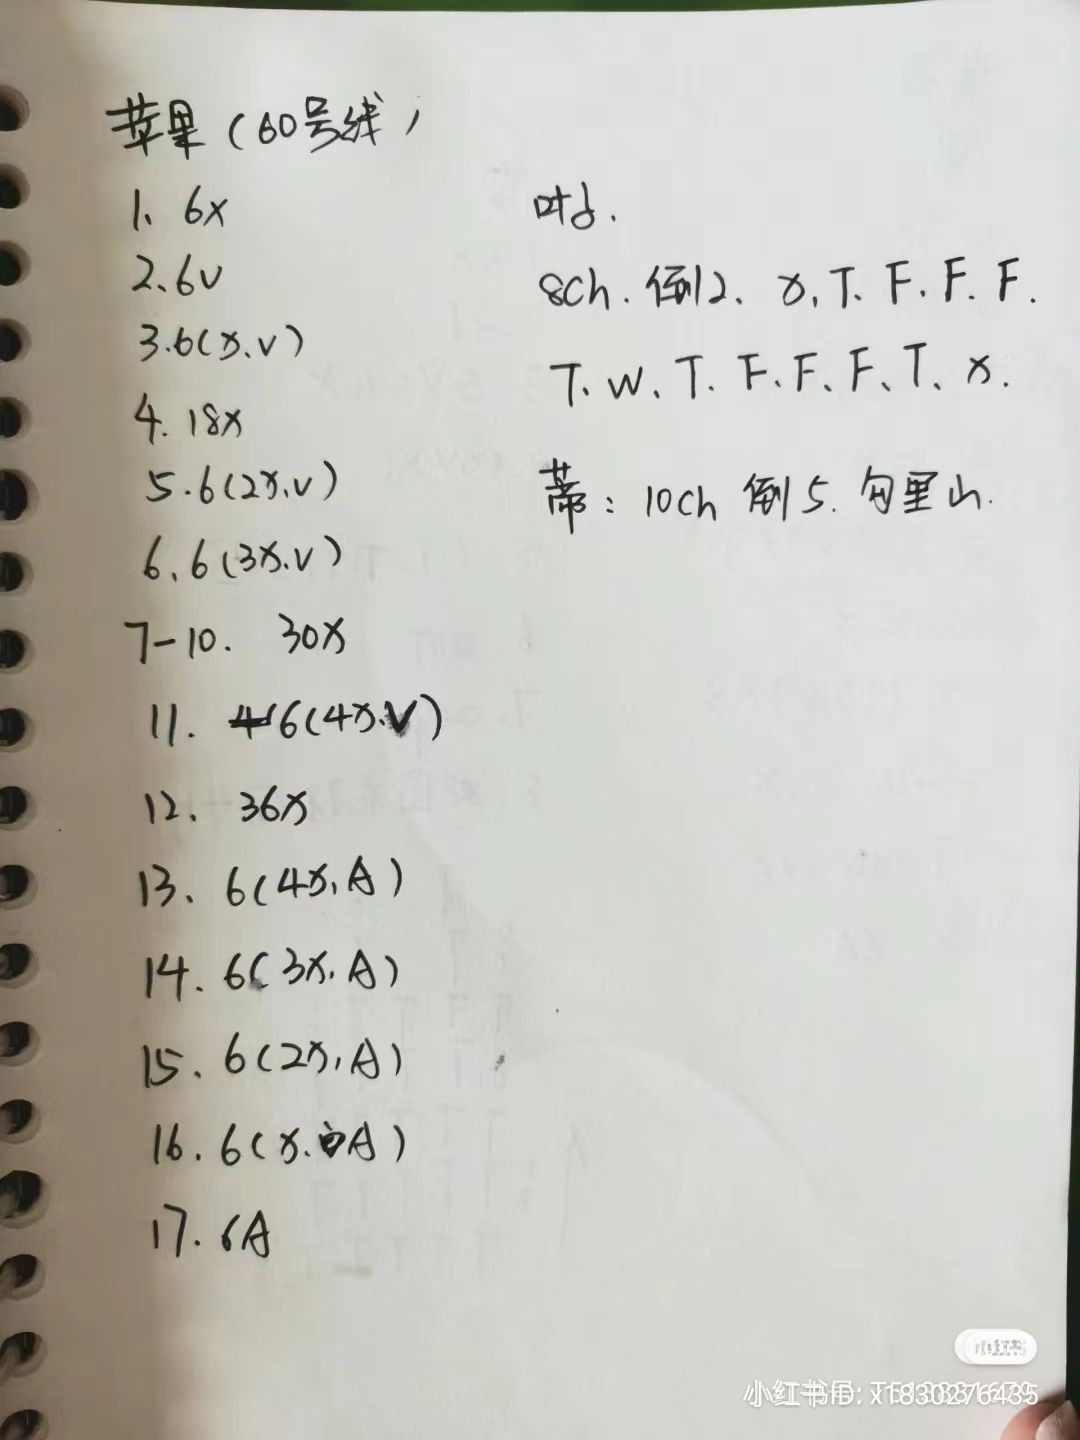 苹果（60号线）
1、6x
2、6v
3.6(x.v)
4.18x
5.6(2x.v)
6、6(3x.v)
7-10. 30x
11. 6(4x.V)
12、36x
13、6(4x,A)
14.6(3x.A)
15.6(2x,A)
16.6(x.A)
17.6A
叶子.
8ch.倒2、x,T.F.F.F.
T.W、T.F.F、F、T、x.
蒂：10ch 倒5.勾里山.
小红书
小红书ID: